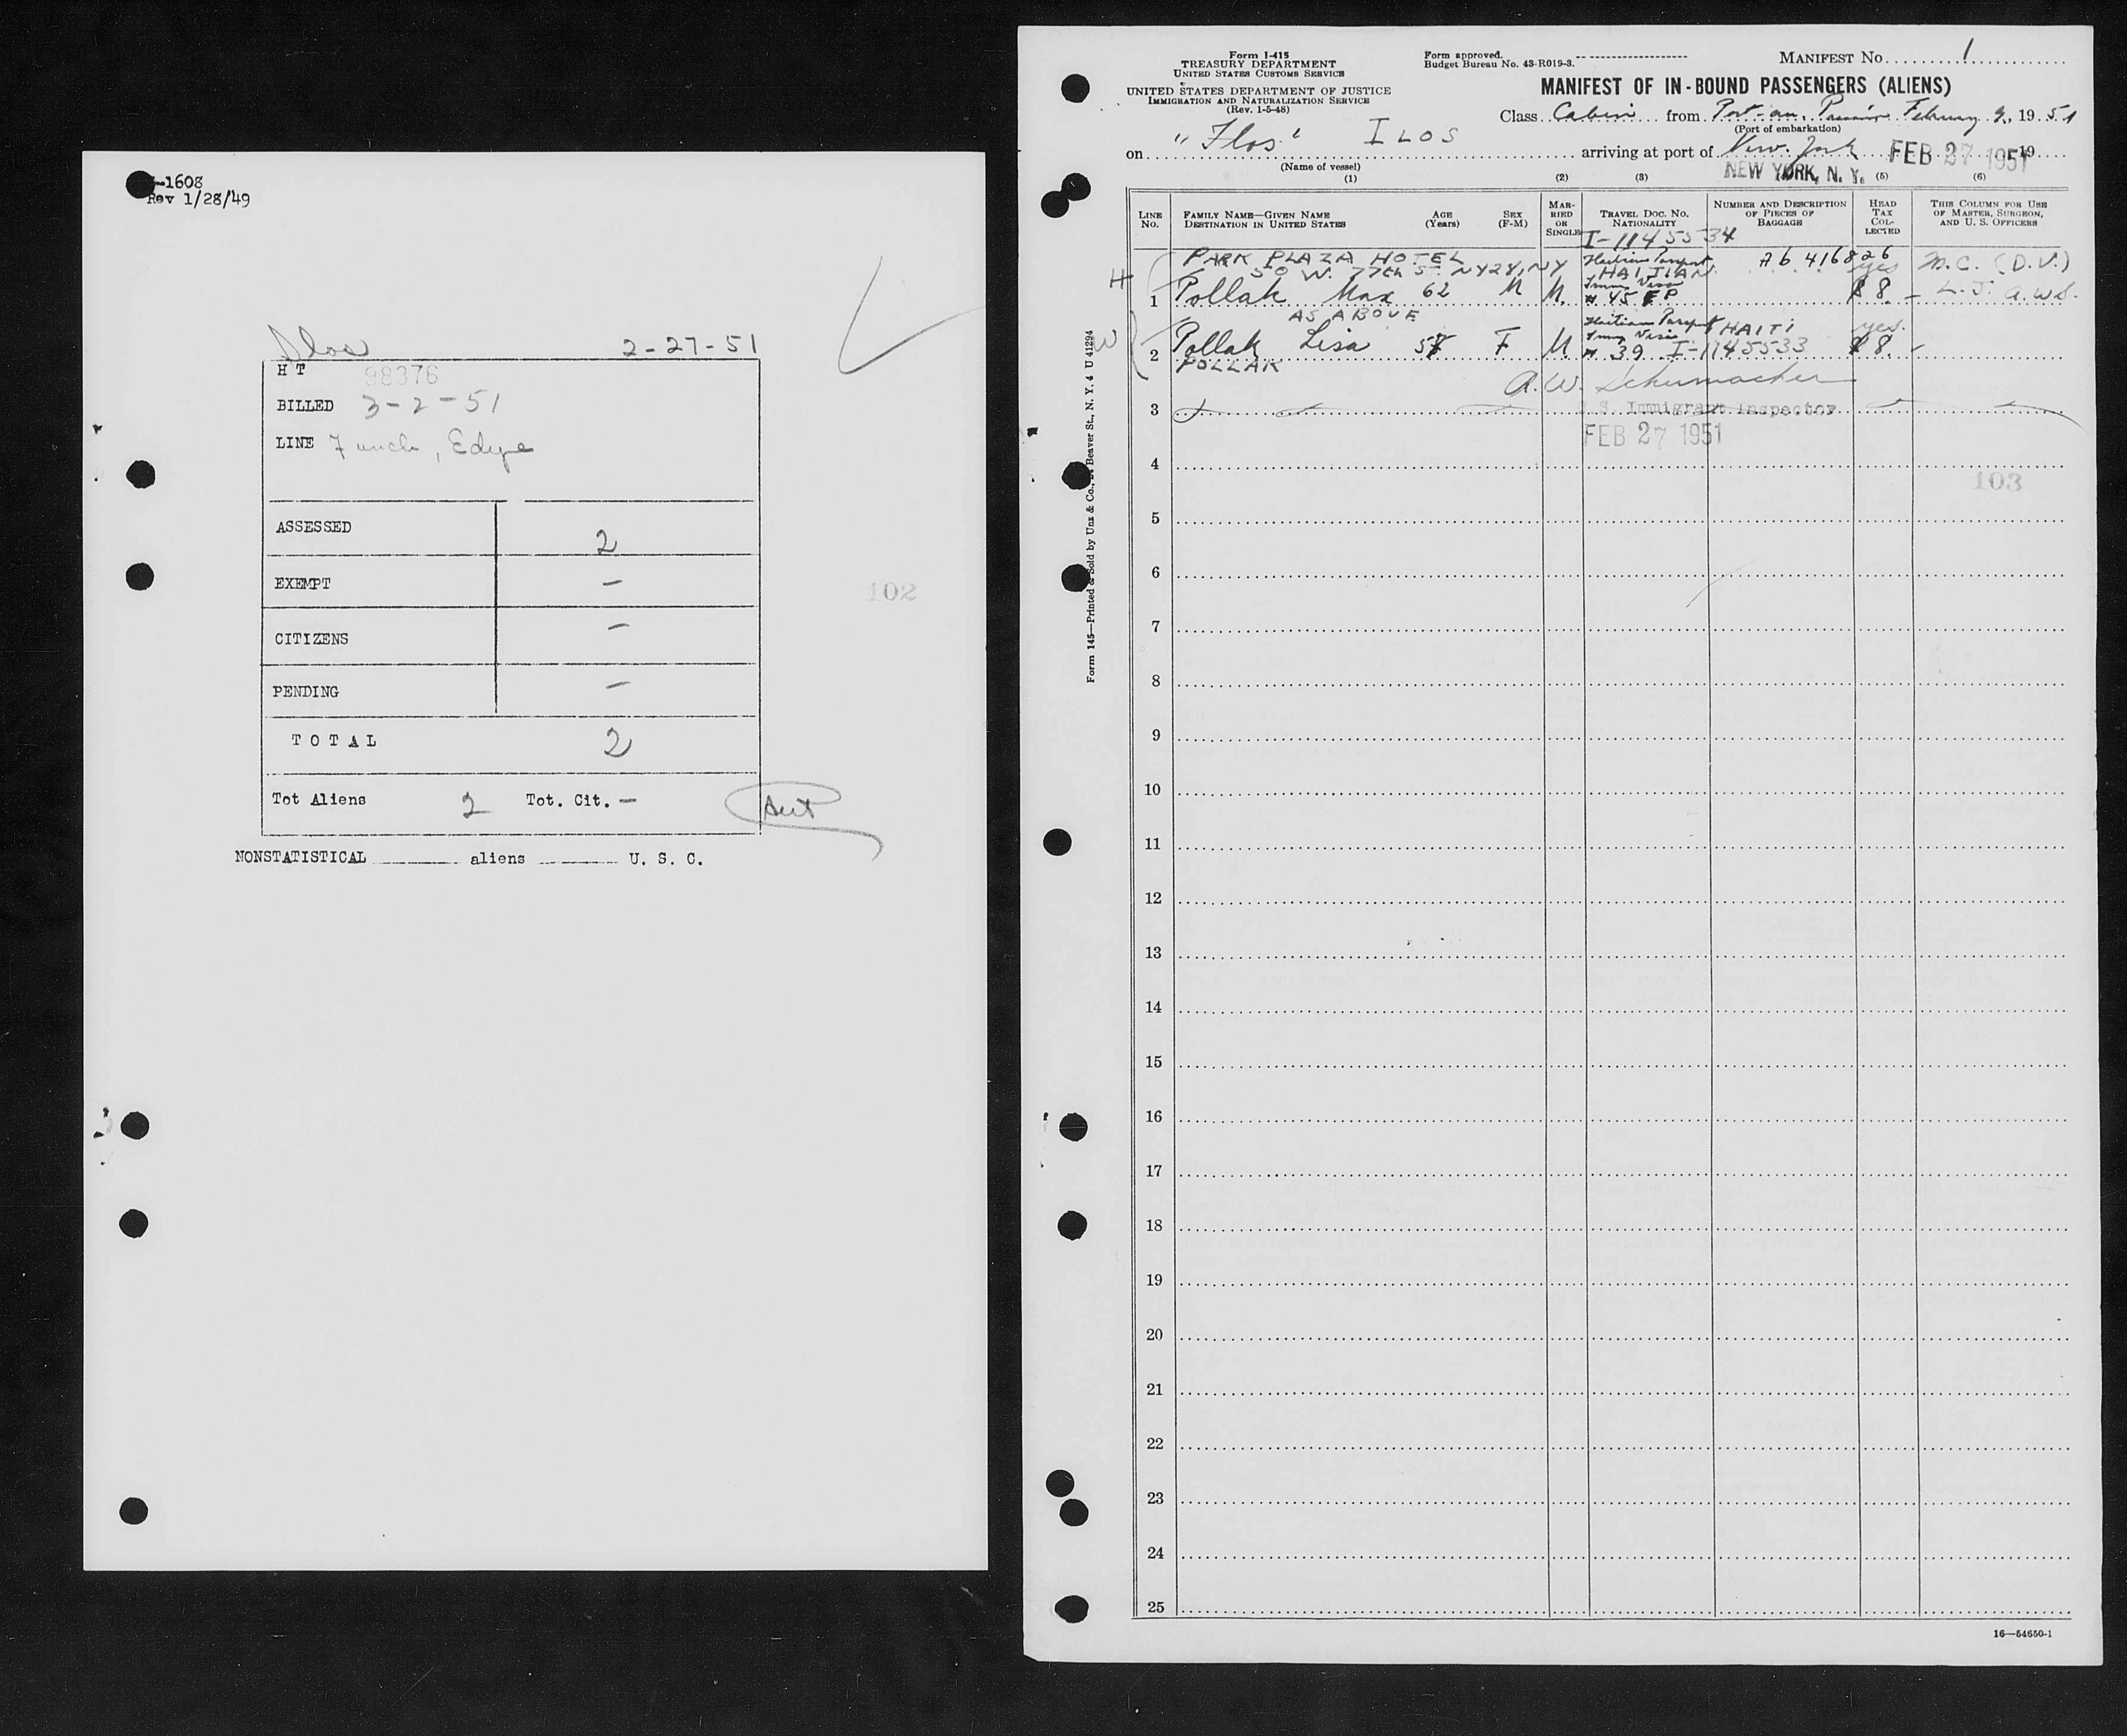 I-1608
Rev 1/28/49
Ilos 2-27-51
H T 98376
BILLED 3-2-51
LINE Funch, Edye
ASSESSED 2
EXEMPT -
CITIZENS -
PENDING -
T O T A L 2
Tot Aliens 2 Tot. Cit. -
NONSTATISTICAL aliens U. S. C.
102
Form I-415
TREASURY DEPARTMENT
UNITED STATES CUSTOMS SERVICE
UNITED STATES DEPARTMENT OF JUSTICE
IMMIGRATION AND NATURALIZATION SERVICE
(Rev. 1-5-48)
Form approved.
Budget Bureau No. 43-R019-3.
MANIFEST No. 1
MANIFEST OF IN-BOUND PASSENGERS (ALIENS)
Class Cabin from Port-au-Prince February 9, 1951
(Port of embarkation)
on "Ilos" ILOS arriving at port of New York FEB 27 1951 19
(Name of vessel) NEW YORK, N. Y.
(1) (2) (3) (5) (6)
LINE No. FAMILY NAME—GIVEN NAME DESTINATION IN UNITED STATES AGE (Years) SEX (F-M) MARRIED OR SINGLE TRAVEL DOC. NO. NATIONALITY NUMBER AND DESCRIPTION OF PIECES OF BAGGAGE HEAD TAX COLLECTED THIS COLUMN FOR USE OF MASTER, SURGEON, AND U. S. OFFICERS
I-1145534
PARK PLAZA HOTEL Haitian Passport A6 416826
H 50 W. 77th ST NY24, NY HAITIAN yes M.C. (D.V.)
1 Pollak Max 62 M M. Imm Visa # 45 $8.- L.J. A.W.S.
AS ABOVE Haitian Passport HAITI yes.
W 2 Pollak Lisa 57 F M Imm Visa # 39 I-1145533 $8.-
POLLAK
A.W. Schumacher
3 U.S. Immigrant Inspector
FEB 27 1951
4
103
5
6
7
8
9
10
11
12
13
14
15
16
17
18
19
20
21
22
23
24
25
Form 145—Printed & Sold by Unz & Co., Beaver St., N. Y. 4 U 41294
16—54650-1